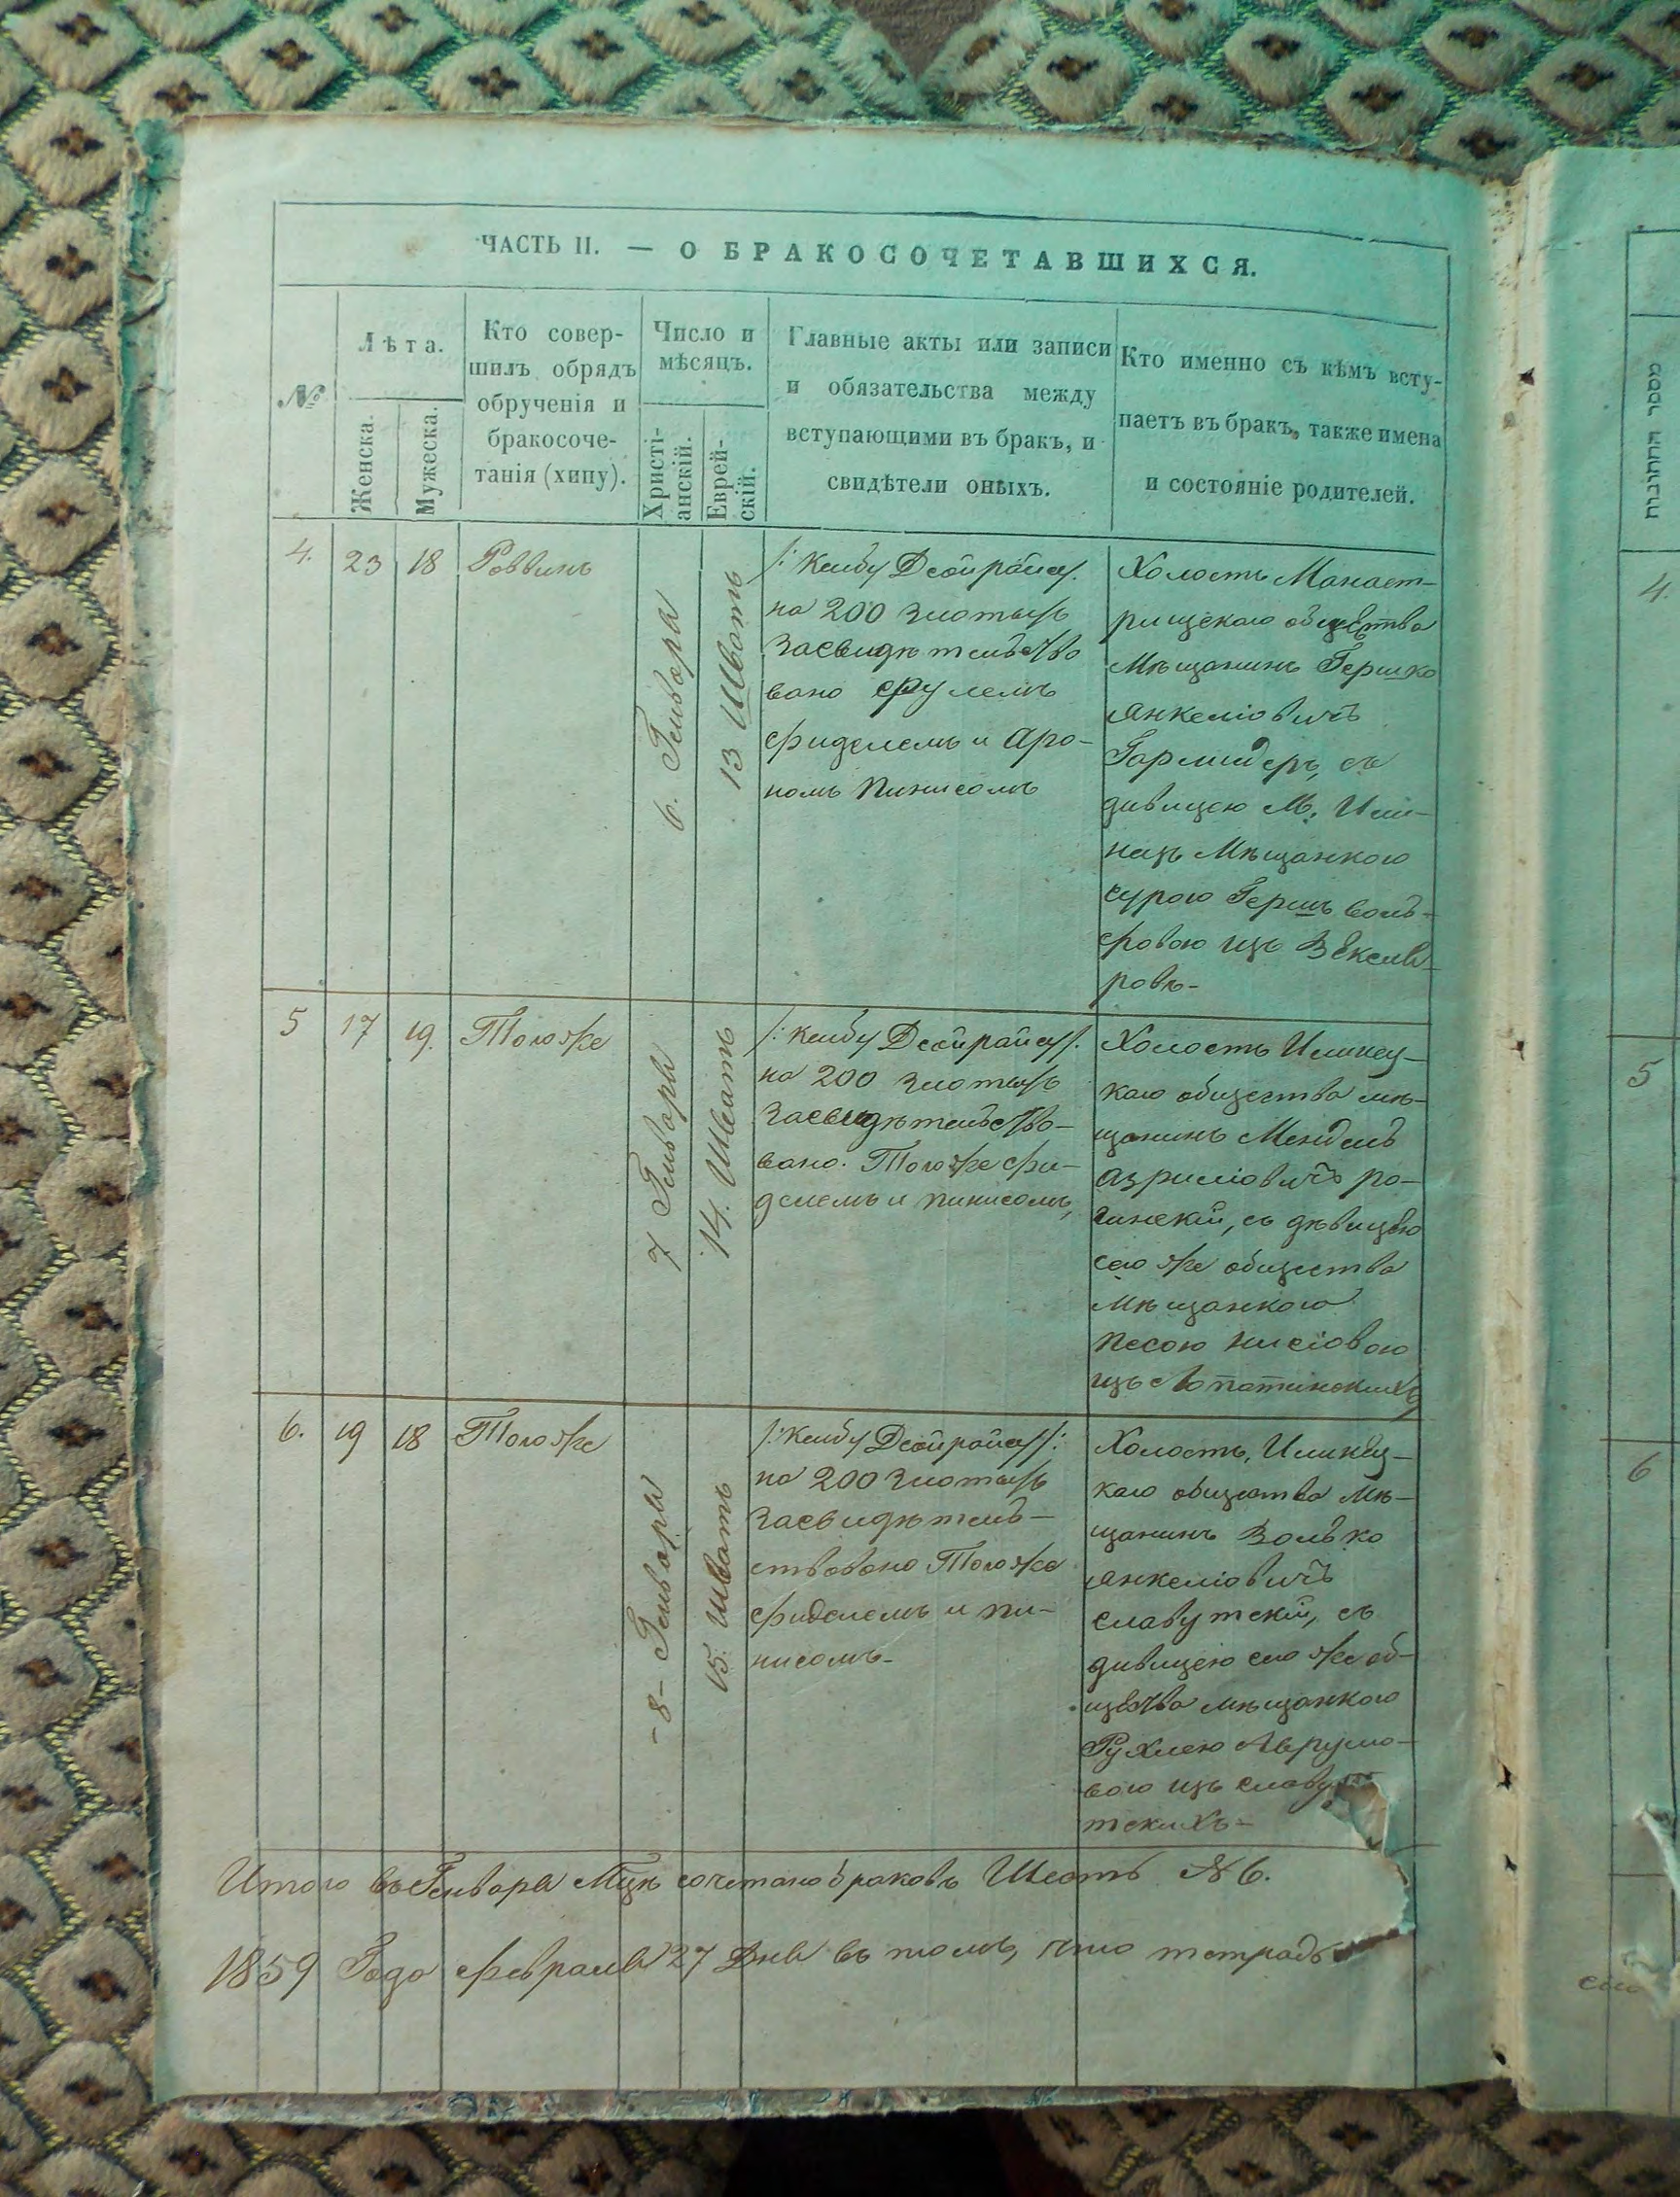 ЧАСТЬ II. — О БРАКОСОЧЕТАВШИХСЯ.
№
Лѣта.
Женска.
Мужеска.
Кто совер-
шилъ обрядъ
обрученія и
бракосоче-
танія (хипу).
Число и
мѣсяцъ.
Христі-
анскій.
Еврей-
скій.
Главные акты или записи
и обязательства между
вступающими въ бракъ, и
свидѣтели оныхъ.
Кто именно съ кѣмъ всту-
паетъ въ бракъ, также имена
и состояніе родителей.
4.
23
18
Раввинъ
6. Генваря
13 Шватъ
/: Ксибу Дсойрайсу/.
на 200 злотыхъ
засвидѣтельство
вано Срулемъ
Фиделемъ и Аро-
номъ Пинисомъ
Холостъ Манаст-
рищскаго общества
мѣщанинъ Гершко
Янкеліовичъ
Гармидеръ, съ
дивицею М. Или-
нецъ мѣщанкою
Сурою Гершъ Воль-
фовою изъ Векслѣ-
ровъ-
5
17
19.
Того же
7 Генваря
14. Шватъ
/: Ксибу Дсойрайсу/:
на 200 злотыхъ
засвидѣтельство-
вано. Того же Фи-
делемъ и Пинисомъ,
Холостъ Илинец-
каго общества мѣ-
щанинъ Мендель
Азриліовичъ Ро-
гинскій, съ дѣвицею
сего же общества
мѣщанкою
Песою Нисіовою
изъ Лопатинскихъ,
6.
19
18
Того же
-8- Генваря
15. Шватъ
/: Ксибу Дсойрайсу/:
на 200 злотыхъ
засвидѣтель-
ствовано Того же
Фиделемъ и Пи-
нисомъ-
Холостъ, Илинец-
каго общества мѣ-
щанинъ Волько
Янкеліовичъ
Славутскій, съ
дивицею сего же об-
щества мѣщанкою
Рухлею Аврумо-
вою изъ Славу
тскихъ-
Итого въ Генваря Мцѣ сочетано браковъ Шесть № 6.
1859 Года Февраля 27 Дня въ томъ, что тетрадь
מספר החתונות
4.
5
6